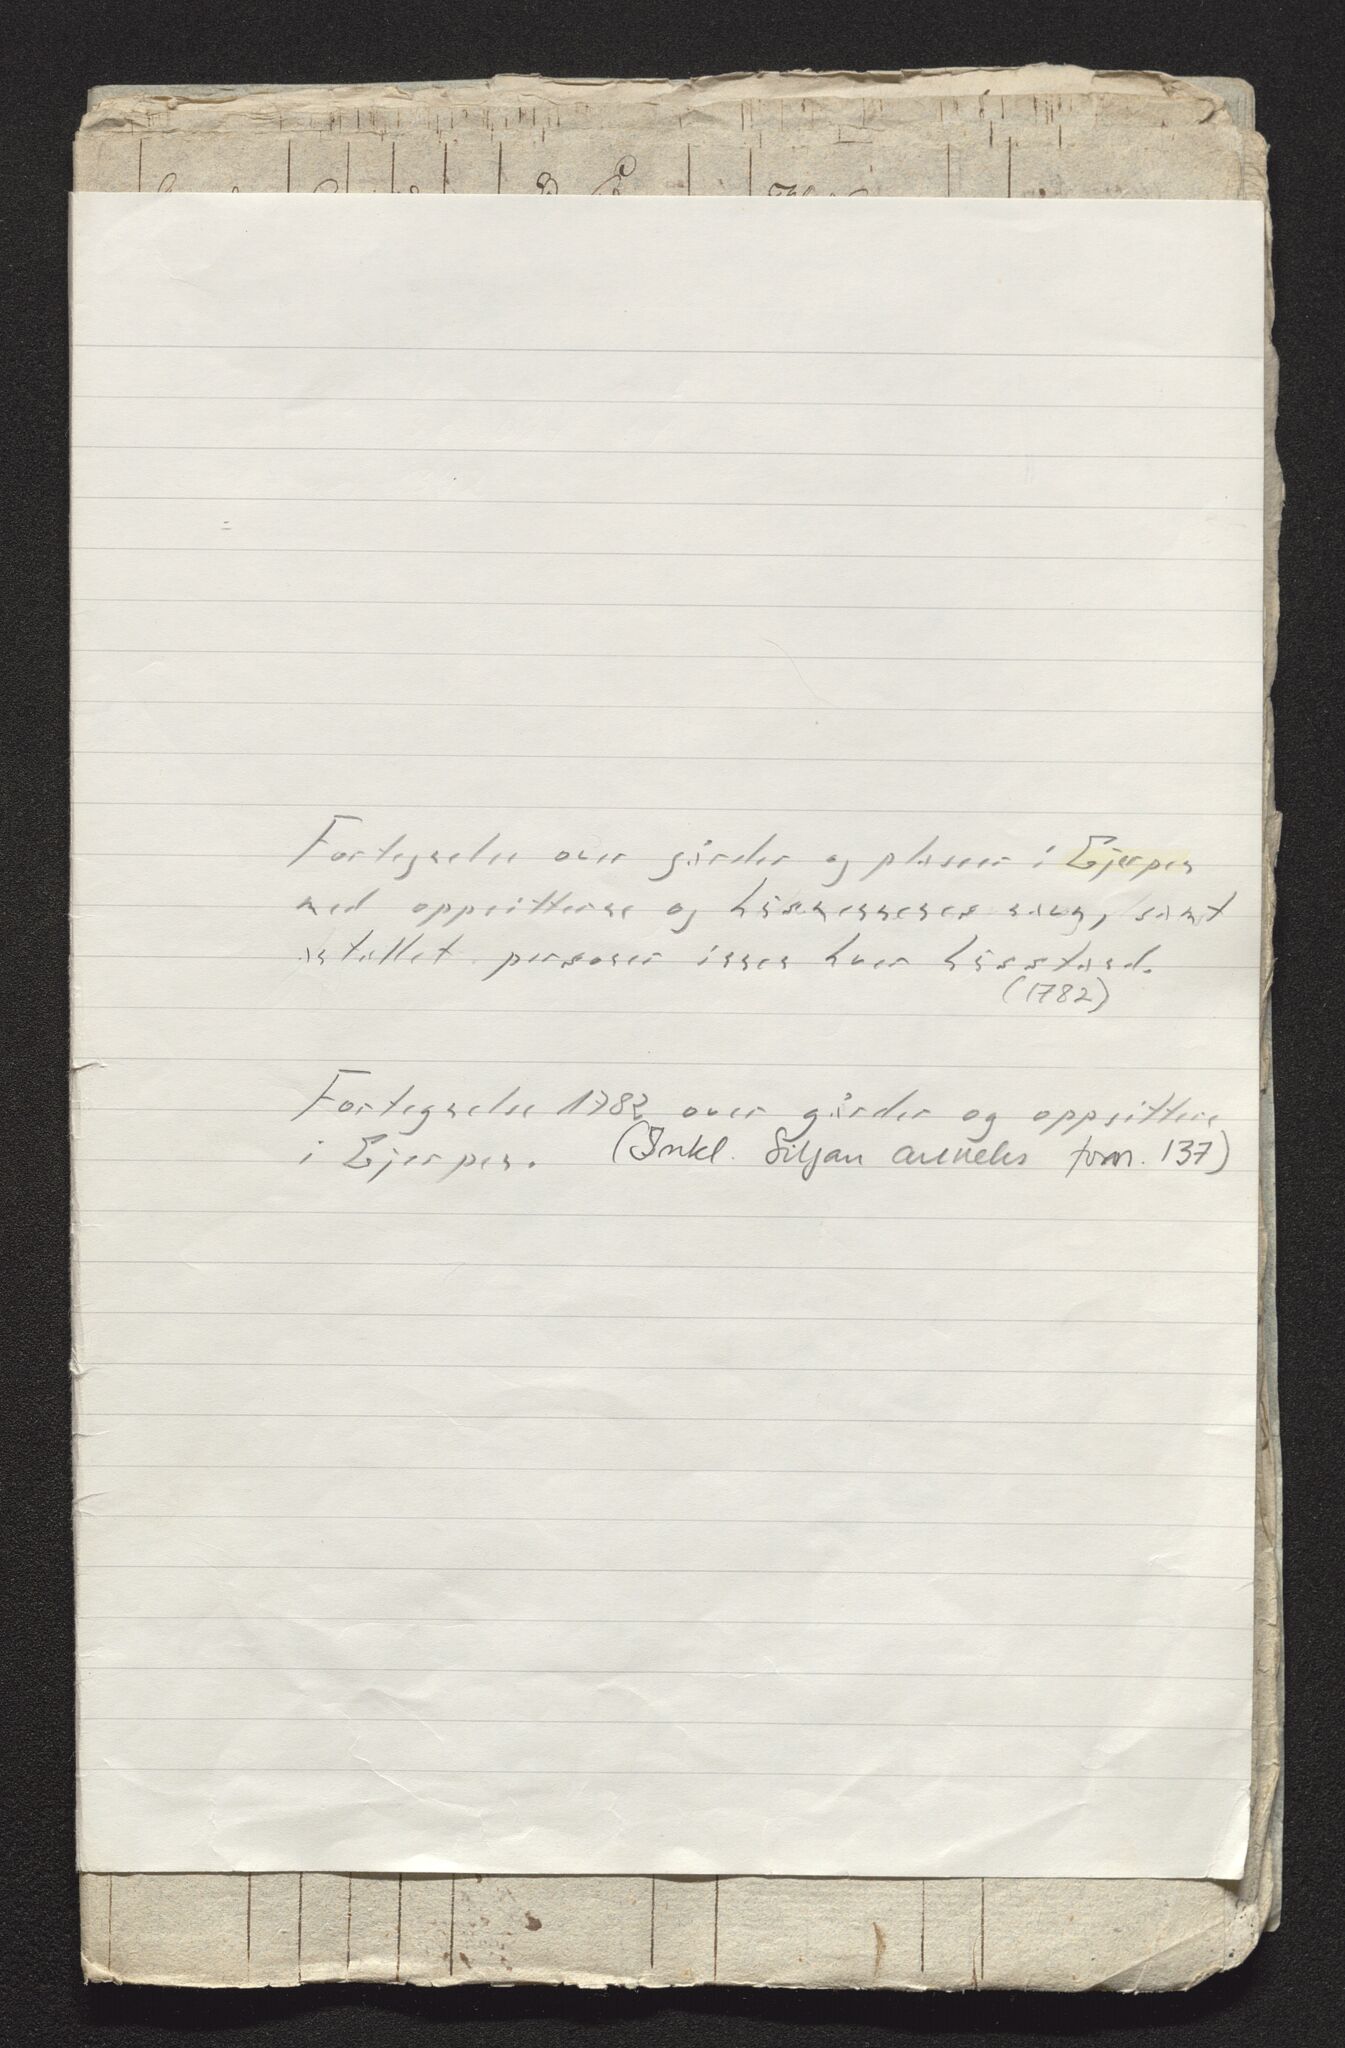 Fortegnelse over gårder og plasser i Gjerpen
med oppsitterne og husmennenes navn, samt
antallet personer innen hver husstand.
(1782)
Fortegnelse 1782 over gårder og oppsittere
i Gjerpen. (Inkl. Siljan anneks fom. 137)